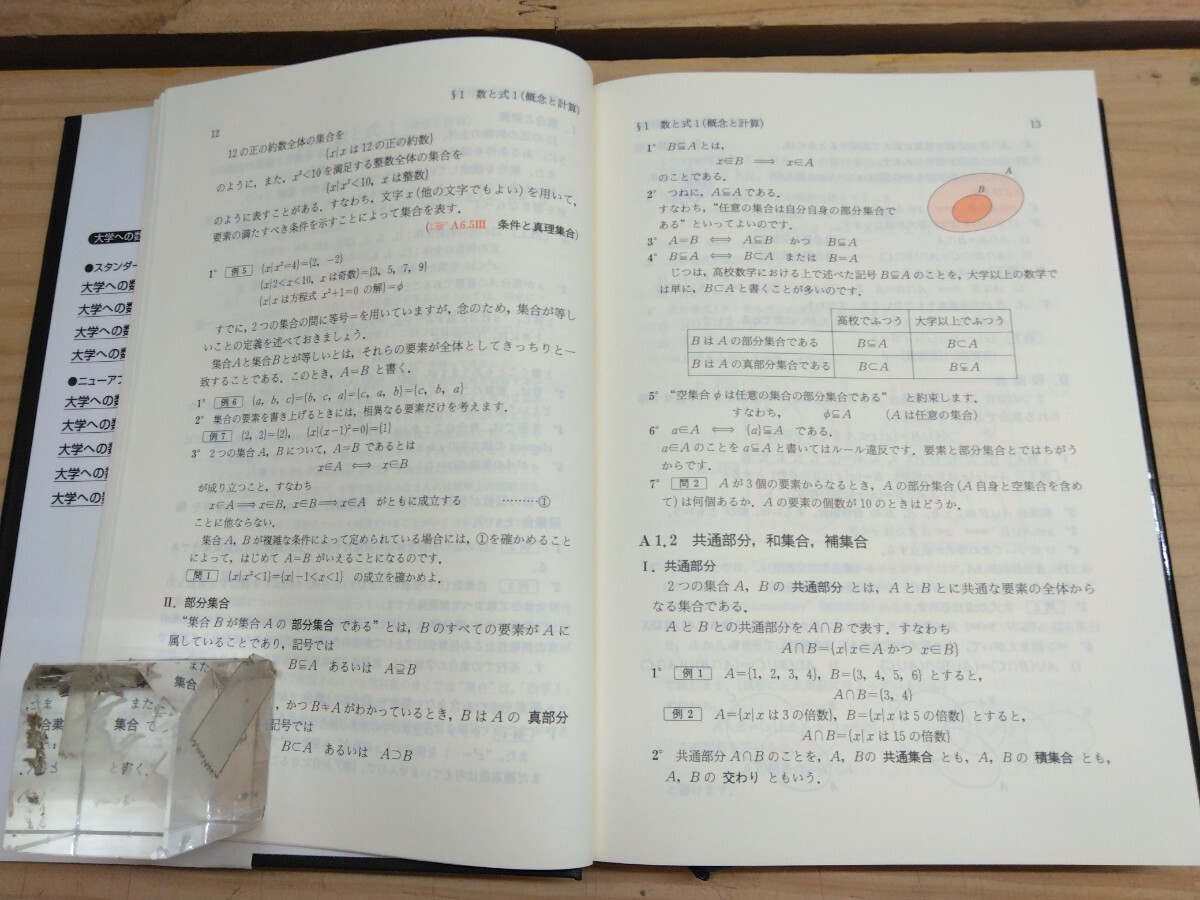 大学への数
●スタンダー
大学への数
大学への数
大学への数
大学への数
●ニューアプ
大学への数
大学への数
大学への数
大学への数
大学への数
§1 数と式1(概念と計算)
12
12の正の約数全体の集合を
{x|xは12の正の約数}
のように,また,x²<10を満足する整数全体の集合を
{x|x²<10, xは整数}
のように表すことがある.すなわち,文字x(他の文字でもよい)を用いて,
要素の満たすべき条件を示すことによって集合を表す.
(☞ A6.5Ⅲ 条件と真理集合)
1° 例5 {x|x²=4}={2, -2}
{x|2<x<10, xは奇数}={3, 5, 7, 9}
{x|xは方程式 x²+1=0 の解}=φ
すでに,2つの集合の間に等号=を用いていますが,念のため,集合が等し
いことの定義を述べておきましょう.
集合Aと集合Bとが等しいとは,それらの要素が全体としてきっちりと一
致することである.このとき,A=Bと書く.
1° 例6 {a, b, c}={b, c, a}={c, a, b}={c, b, a}
2° 集合の要素を書き上げるときには,相異なる要素だけを考えます.
例7 {2, 2}={2}, {x|(x-1)²=0}={1}
3° 2つの集合A, Bについて,A=Bであるとは
x∈A ⟺ x∈B
が成り立つこと,すなわち
x∈A⟹x∈B, x∈B⟹x∈A がともに成立する ………①
ことに他ならない.
集合A, Bが複雑な条件によって定められている場合には,①を確かめること
によって,はじめてA=Bがいえることになるのです.
問1 {x|x²<1}={x|-1<x<1} の成立を確かめよ.
Ⅱ. 部分集合
“集合Bが集合Aの 部分集合 である”とは,BのすべてのF要素がAに
属していることであり,記号では
B⊆A あるいは A⊇B
また,
集合
,かつB≠Aがわかっているとき,BはAの 真部分
記号では
B⊂A あるいは A⊃B
また,
集合 で
と書く.
§1 数と式1(概念と計算)
13
1° B⊆Aとは,
x∈B ⟹ x∈A
のことである.
A
B
2° つねに,A⊆Aである.
すなわち,“任意の集合は自分自身の部分集合で
ある”といってよいのです.
3° A=B ⟺ A⊆B かつ B⊆A
4° B⊆A ⟺ B⊂A または B=A
じつは,高校数学における上で述べた記号B⊆Aのことを,大学以上の数学で
は単に,B⊂Aと書くことが多いのです.
高校でふつう 大学以上でふつう
BはAの部分集合である B⊆A B⊂A
BはAの真部分集合である B⊂A B⊊A
5° “空集合φは任意の集合の部分集合である” と約束します.
すなわち, φ⊆A (Aは任意の集合)
6° a∈A ⟺ {a}⊆A である.
a∈Aのことをa⊆Aと書いてはルール違反です.要素と部分集合とではちがう
からです.
7° 問2 Aが3個の要素からなるとき,Aの部分集合(A自身と空集合を含め
て)は何個あるか.Aの要素の個数が10のときはどうか.
A1.2 共通部分,和集合,補集合
Ⅰ. 共通部分
2つの集合A, Bの 共通部分 とは,AとBとに共通な要素の全体から
なる集合である.
AとBとの共通部分をA∩Bで表す.すなわち
A∩B={x|x∈A かつ x∈B}
1° 例1 A={1, 2, 3, 4}, B={3, 4, 5, 6} とすると,
A∩B={3, 4}
例2 A={x|xは3の倍数}, B={x|xは5の倍数} とすると,
A∩B={x|xは15の倍数}
2° 共通部分A∩Bのことを,A, Bの 共通集合 とも,A, Bの 積集合 とも,
A, Bの 交わり ともいう.